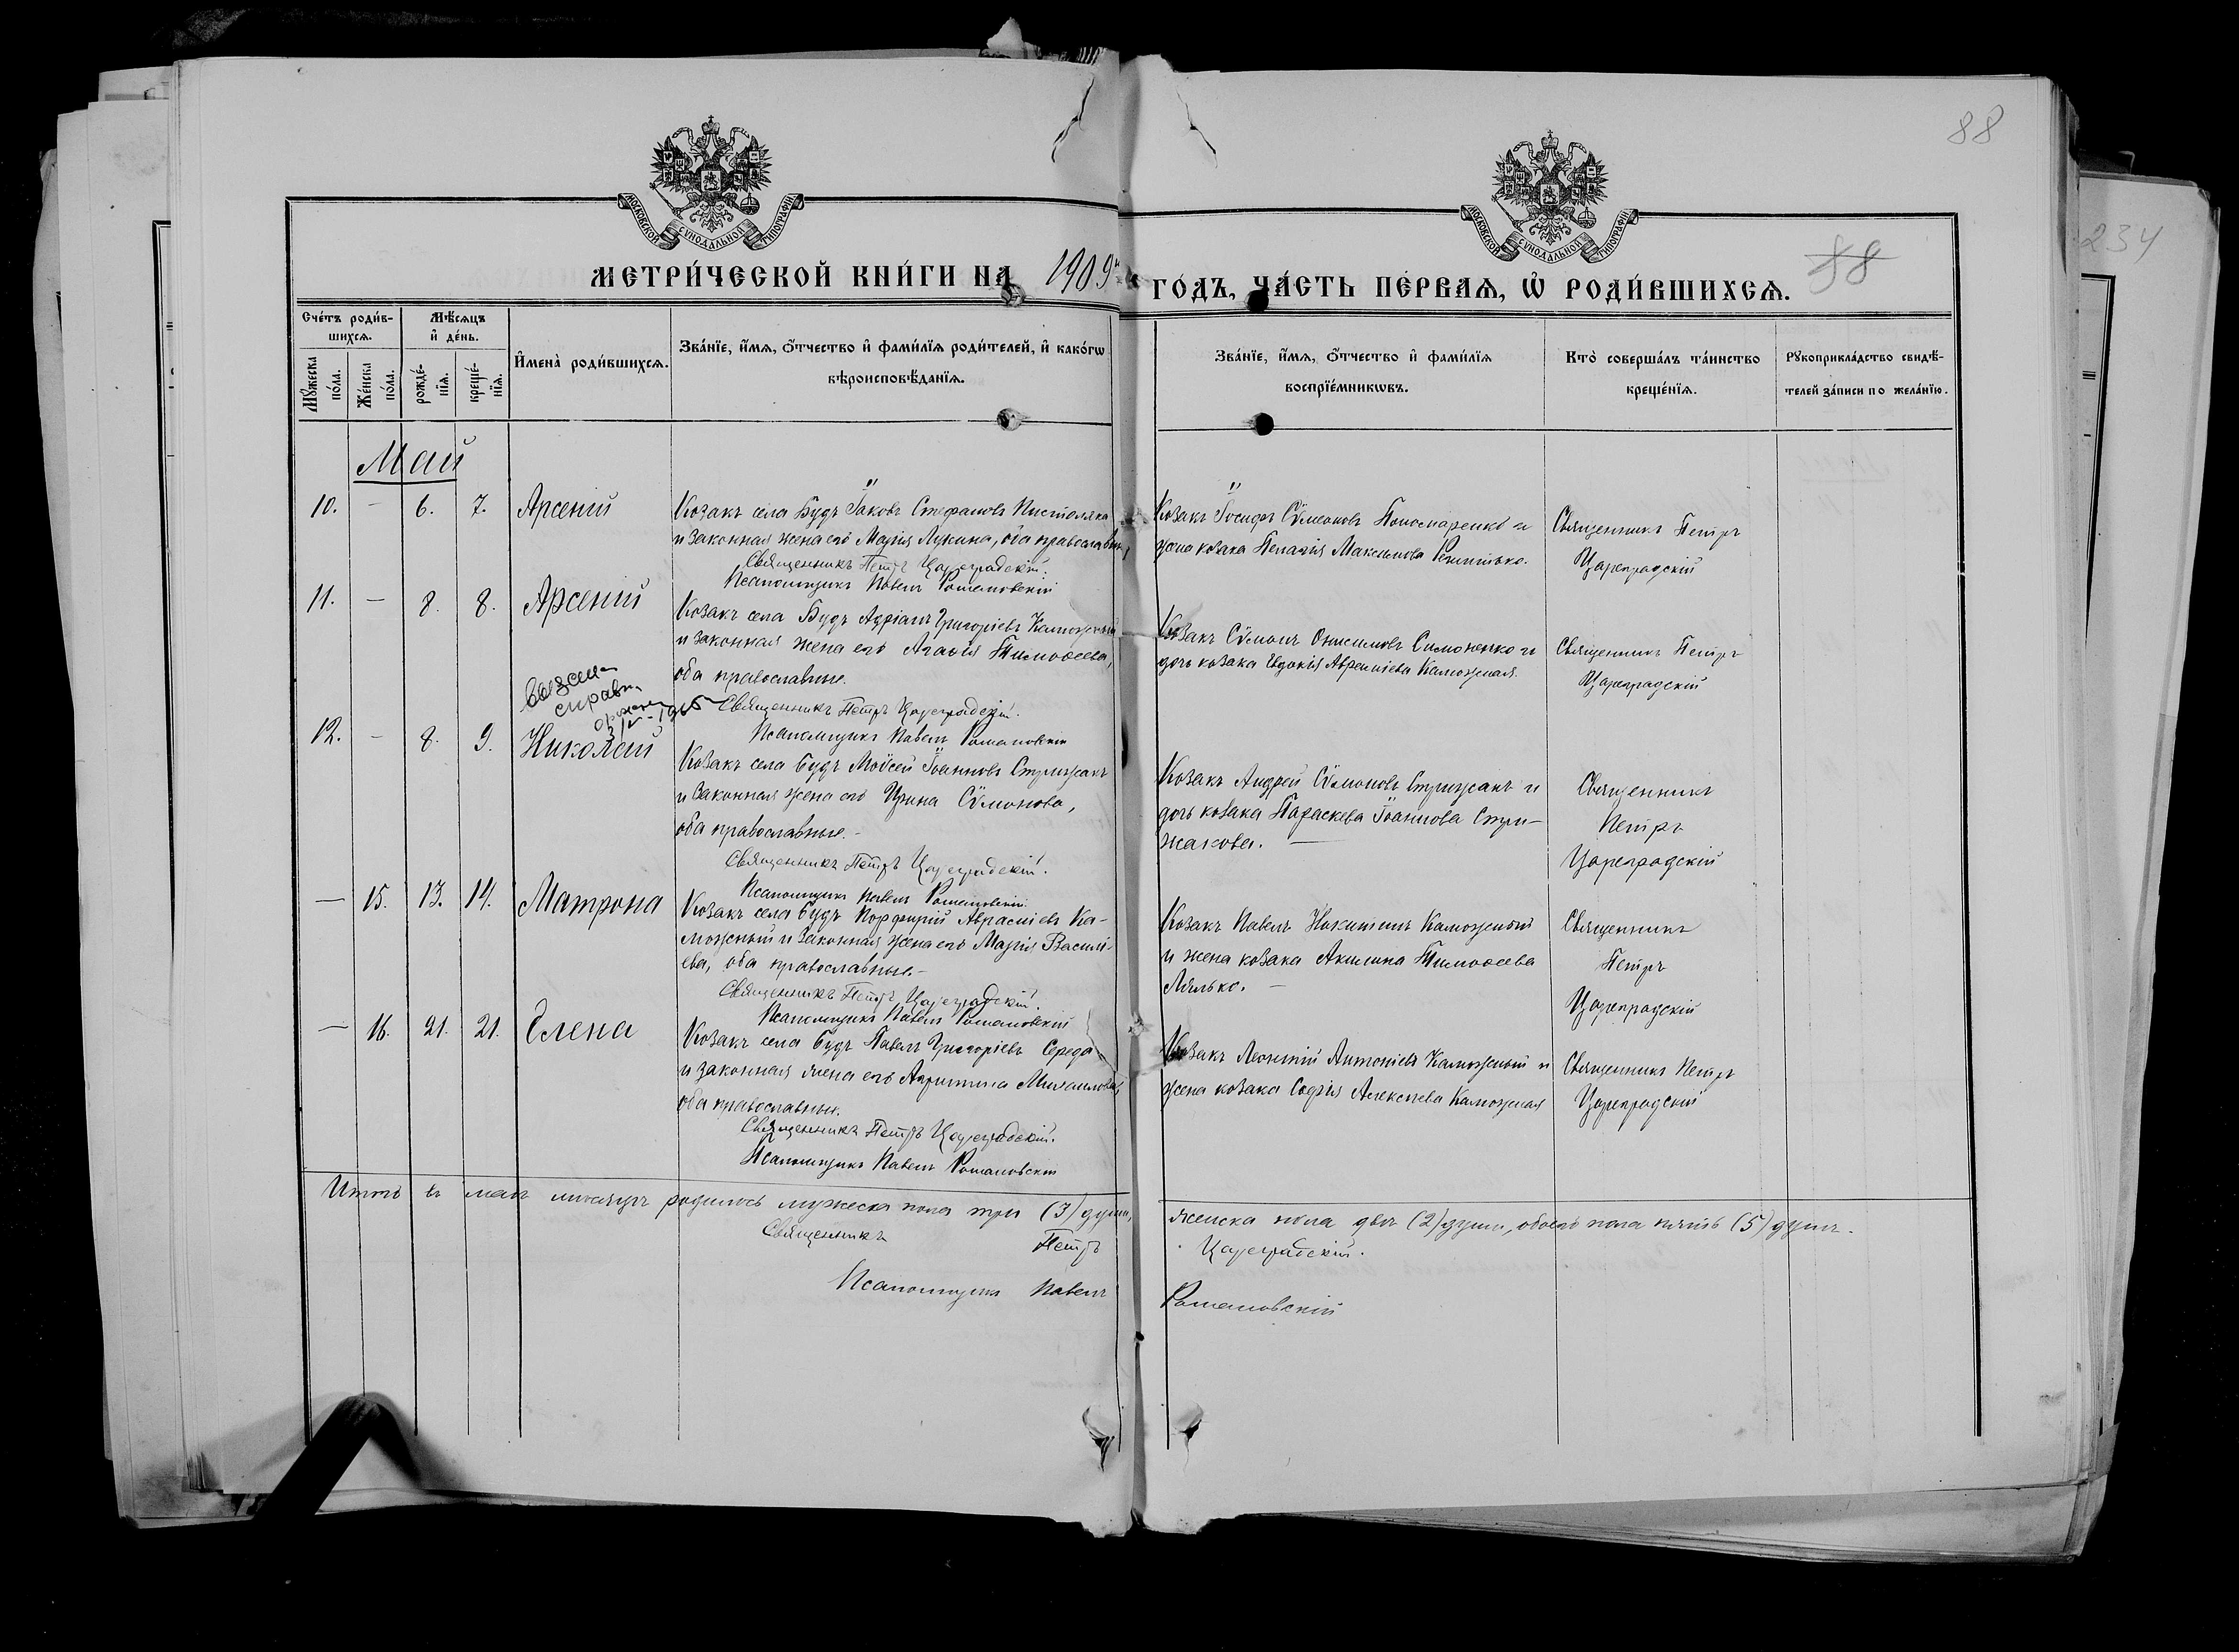 88
МОСКОВСКОЙ СУНОДАЛЬНОЙ ТИПОГРАФІИ
МОСКОВСКОЙ СУНОДАЛЬНОЙ ТИПОГРАФІИ
234
88
МЕТРИ́ЧЕСКОЙ КНИ́ГИ НА 1909й ГО́ДЪ, ЧА́СТЬ ПЕ́РВАЯ, Ѡ РОДИ́ВШИХСЯ.
Сче́тъ роди́в-
шихся.
Мѣ́сяцъ
и҆ де́нь.
Мꙋжеска
по́ла.
Же́нска
по́ла.
рожде́-
нїя.
креще́-
нїя.
И҆мена̀ роди́вшихся.
Зва́нїе, и҆́мя, ѻ҆́тчество и҆ фами́лїя роди́телей, и҆ како́гѡ
вѣроисповѣ́данїя.
Зва́нїе, и҆́мя, ѻ҆́тчество и҆ фами́лїя
воспрїе́мникѡвъ.
Кто̀ соверша́лъ та́инство
креще́нїя.
Рꙋкоприкла́дство свидѣ́-
телей за́писи по жела́нїю.
Май
10. — 6. 7. Арсеній
Козакъ села Будъ Іаковъ Стефановъ Пистоляка
и законная жена его Марія Лукина, оба православные,
Священникъ Петръ Цареградскій.
Псаломщикъ Павелъ Романовскій
Козакъ Іосифъ Сѵмеоновъ Пономаренко и
жена козака Пелагія Максимова
Священникъ Петръ
Цареградскій
11. — 8. 8. Арсеній
Козакъ села Будъ Адріанъ Григоріевъ Каможный
и законная жена его Агафія Тимоѳеева,
оба православные.
Священникъ Петръ Цареградскій.
Псаломщикъ Павелъ Романовскій
Козакъ Сѵмонъ Онисимовъ Симоненко и
дочь козака Евдокія Каможная
Священникъ Петръ
Цареградскій
справк
12. — 8. 9. Николай
Козакъ села Будъ Моѵсей Іоанновъ Стрижакъ
и законная жена его Ирина Сѵмонова,
оба православные. –
Священникъ Петръ Цареградскій.
Псаломщикъ Павелъ Романовскій
Козакъ Андрей Сѵмоновъ Стрижакъ и
дочь козака Параскева Іоаннова Стри-
жакова. —
Священникъ
Петръ
Цареградскій
— 15. 13. 14. Матрона
Козакъ села Будъ Порфирій Ка-
можный и законная жена его Марія Василі-
ева, оба православные. –
Священникъ Петръ Цареградскій.
Псаломщикъ Павелъ Романовскій
Козакъ Павелъ Никитинъ Каможный
и жена козака Акилина Тимоѳеева
Лялько. –
Священникъ
Петръ
Цареградскій
— 16. 21. 21. Елена
Козакъ села Будъ Павелъ Григоріевъ Середа
и законная жена его Михаилова,
оба православные.
Священникъ Петръ Цареградскій.
Псаломщикъ Павелъ Романовскій
Козакъ Леонтій Антоніевъ Каможный и
жена козака Софія Алексѣева Каможная
Священникъ Петръ
Цареградскій
Итого въ маѣ мѣсяцѣ родилось мужеска пола три (3) души, женска пола двѣ (2) души, обоего пола пять (5) душъ.
Священникъ Петръ Цареградскій.
Псаломщикъ Павелъ Романовскій